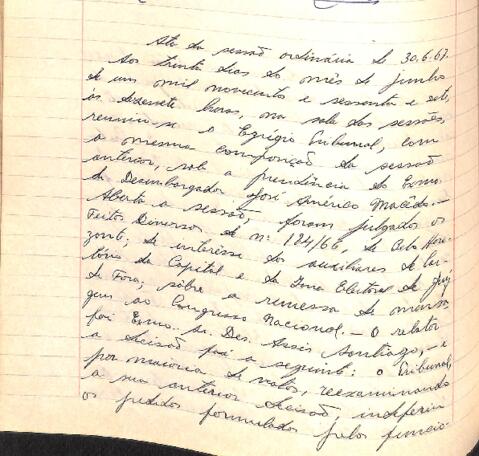 Ata da sessão ordinária de 30.6.67.
Aos trinta dias do mês de junho
de um mil novecentos e sessenta e sete,
às dezessete horas, na sala das sessões,
reuniu-se o Egrégio Tribunal, com
a mesma composição da sessão
anterior, sob a presidência do Exmo.
Sr. Desembargador José Américo Macêdo. —
Aberta a sessão, foram julgados os
Feitos Diversos de nº 124/66, de Belo Hori-
zonte; de interêsse dos auxiliares de Car-
tório da Capital e da Zona Eleitoral de Juiz
de Fora, sôbre a remessa de mensa-
gem ao Congresso Nacional. — O relator
foi Exmo. Sr. Des. Assis Santiago, — e
a decisão foi a seguinte: o Tribunal,
por maioria de votos, reexaminando
a sua anterior decisão, indeferiu
os pedidos formulados pelos funcio-